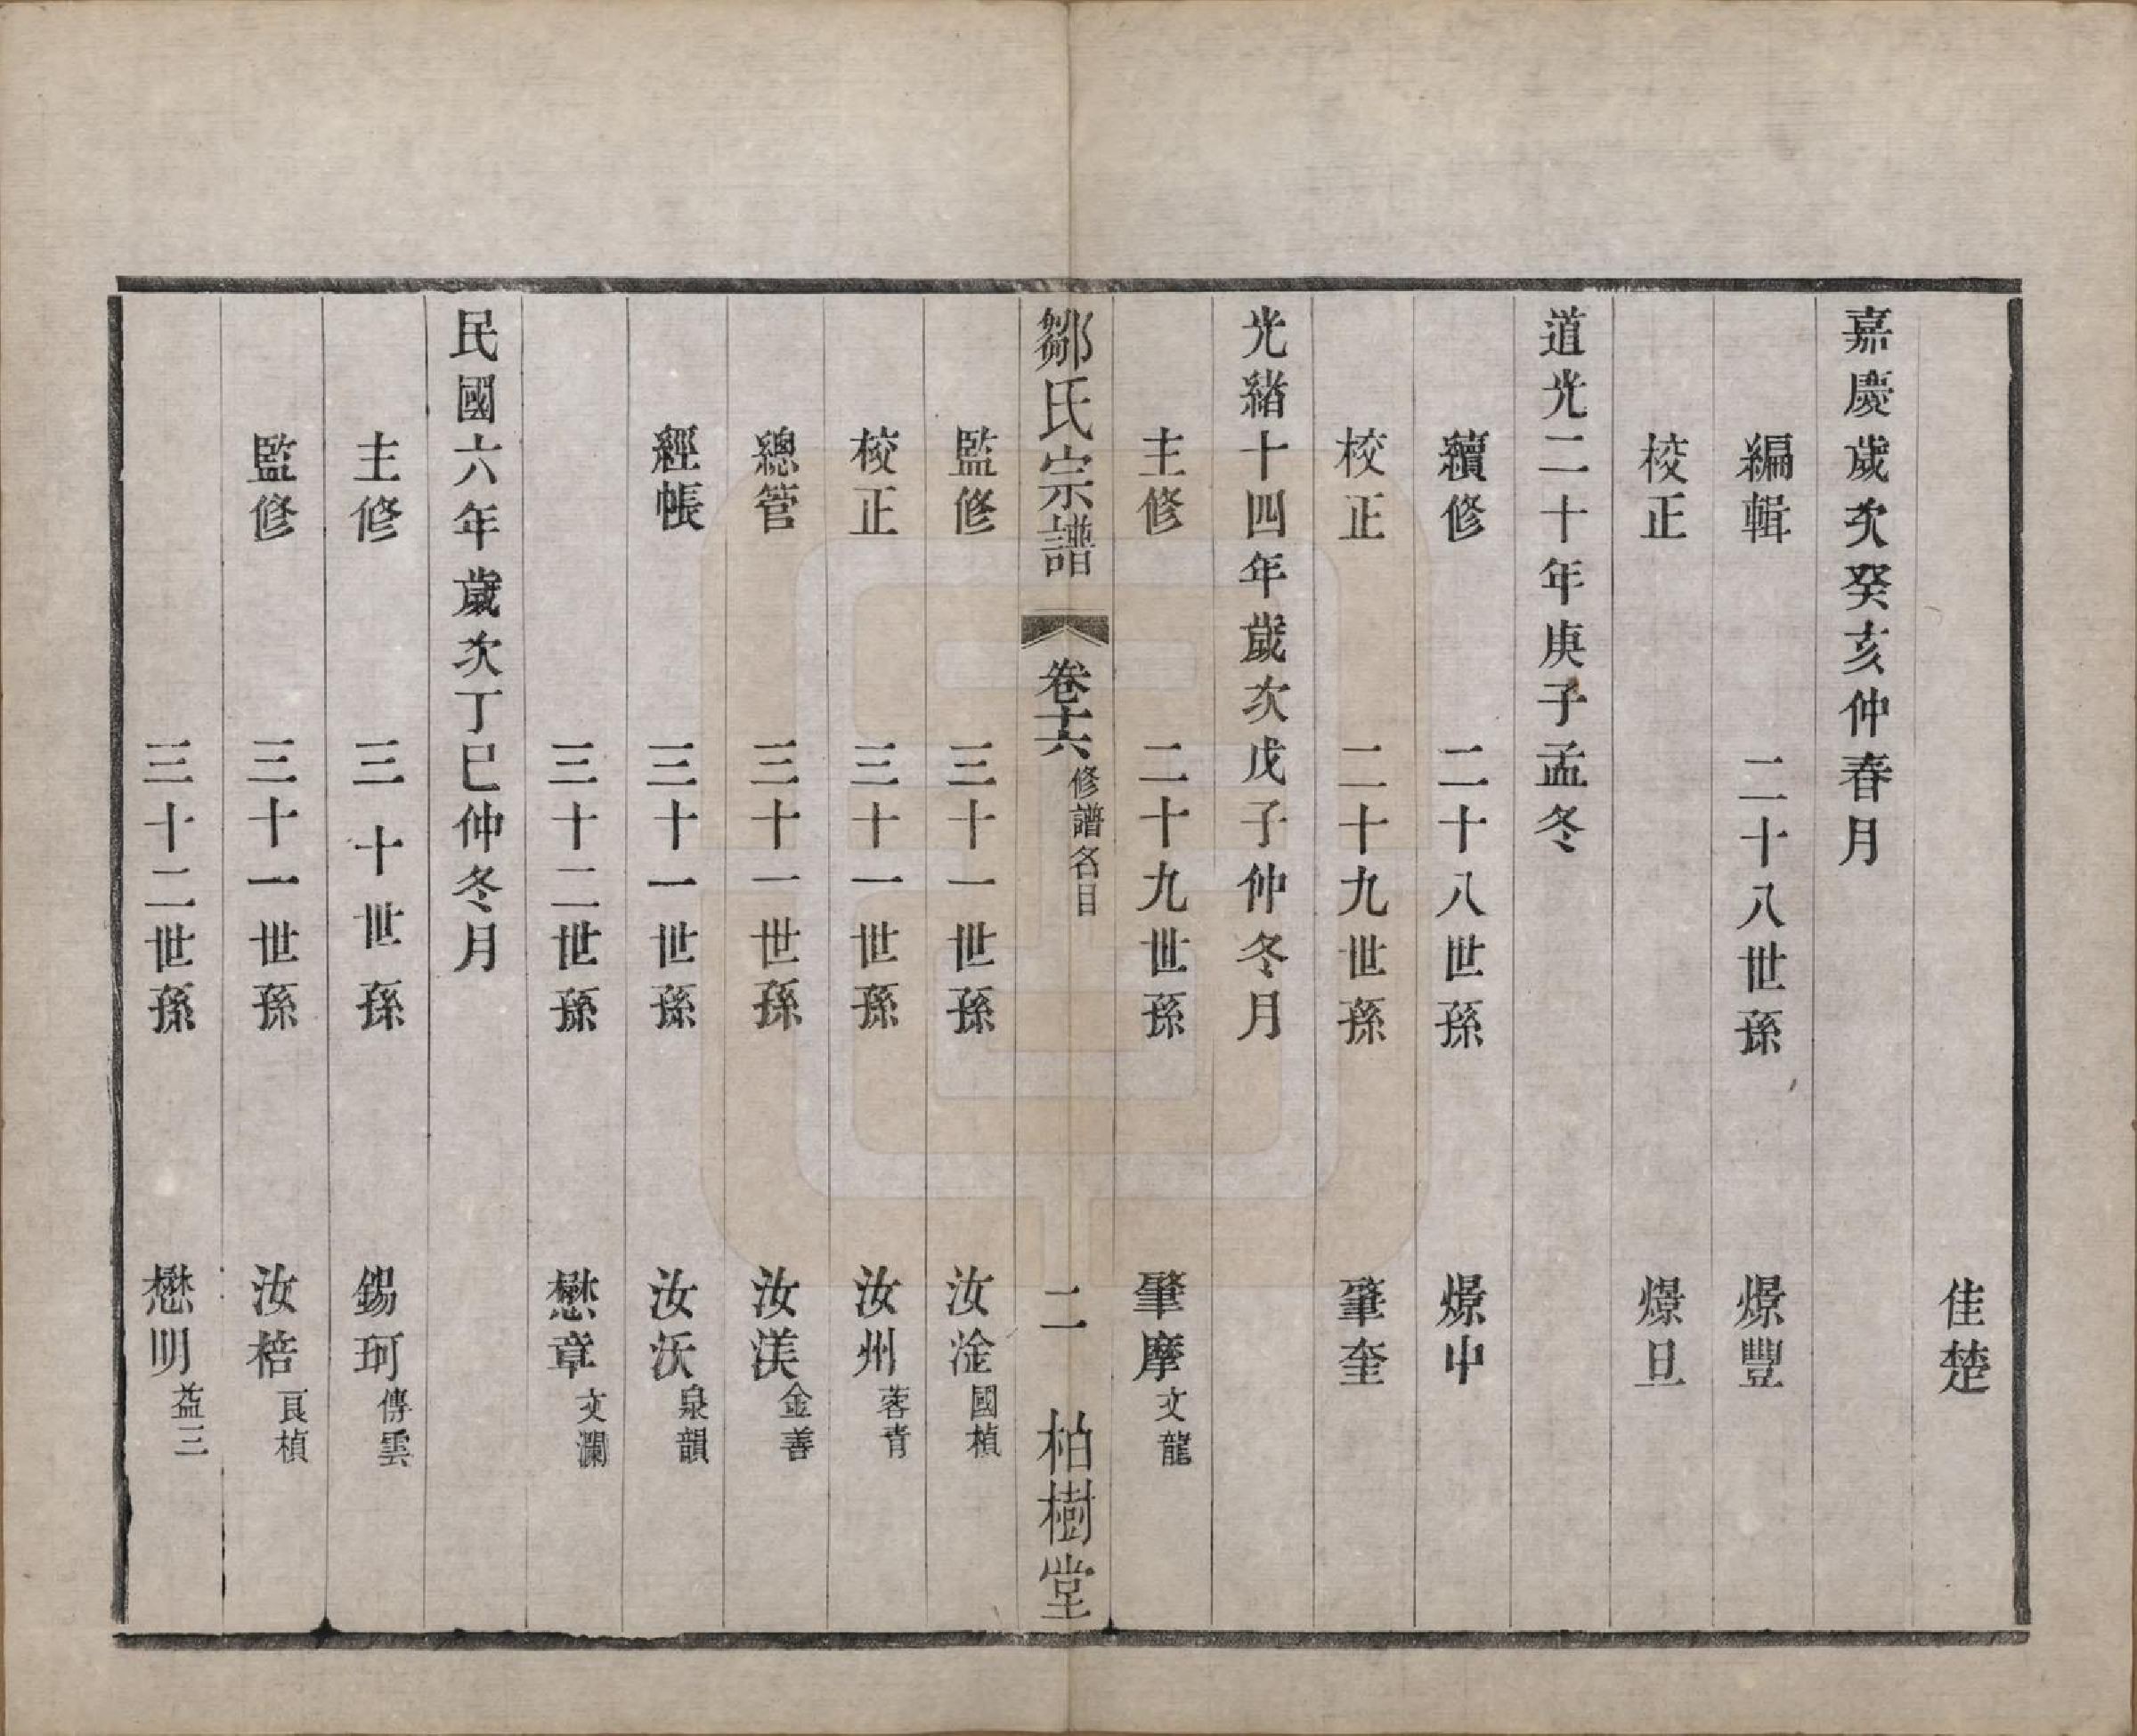 佳楚
嘉慶歲次癸亥仲春月
編輯 二十八世孫 燝豐
校正 燝旦
道光二十年庚子孟冬
續修 二十八世孫 燝中
校正 二十九世孫 肇奎
光緒十四年歲次戊子仲冬月
主修 二十九世孫 肇摩 文龍
鄒氏宗譜 卷十六 修譜名目 二 柏樹堂
監修 三十一世孫 汝淦 國楨
校正 三十一世孫 汝州 蓉青
總管 三十一世孫 汝渼 金善
經帳 三十一世孫 汝沃 泉韻
三十二世孫 懋章 文瀾
民國六年歲次丁巳仲冬月
主修 三十世孫 錫珂 傳雲
監修 三十一世孫 汝楛 良楨
三十二世孫 懋明 益三